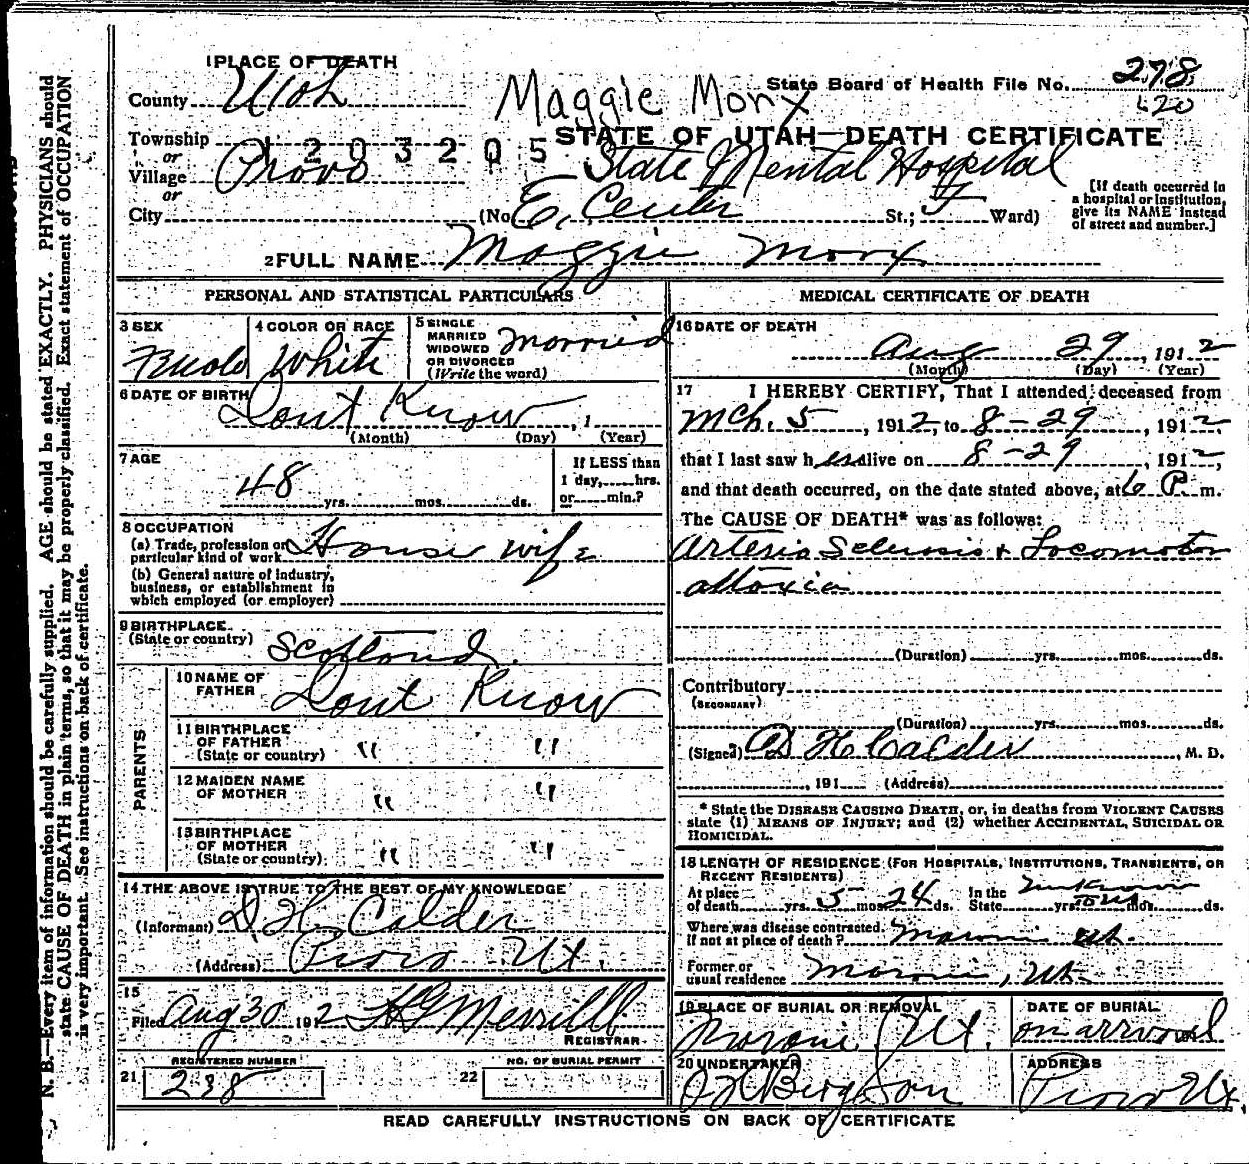 1 PLACE OF DEATH
County Utah
Maggie Morx
State Board of Health File No. 278
420
STATE OF UTAH—DEATH CERTIFICATE
Township
1203205
or
Village Provo
or
State Mental Hospital
City (No. E. Center St.; 5 Ward)
[If death occurred in a hospital or institution, give its NAME instead of street and number.]
2 FULL NAME Maggie Morx
PERSONAL AND STATISTICAL PARTICULARS
3 SEX
4 COLOR OR RACE White
5 SINGLE MARRIED WIDOWED OR DIVORCED (Write the word) Married
6 DATE OF BIRTH Dont Know, 1
(Month) (Day) (Year)
7 AGE
48 yrs. mos. ds.
If LESS than 1 day, hrs. or min.?
8 OCCUPATION
(a) Trade, profession or particular kind of work House wife
(b) General nature of industry, business, or establishment in which employed (or employer)
9 BIRTHPLACE
(State or country) Scotland
PARENTS
10 NAME OF FATHER Dont Know
11 BIRTHPLACE OF FATHER (State or country) " "
12 MAIDEN NAME OF MOTHER " "
13 BIRTHPLACE OF MOTHER (State or country) " "
14 THE ABOVE IS TRUE TO THE BEST OF MY KNOWLEDGE
(Informant) D. H. Calder
(Address) Provo Ut.
15
Filed Aug 30 1912 H G Merrill
REGISTRAR
REGISTERED NUMBER
21 238
NO. OF BURIAL PERMIT
22
MEDICAL CERTIFICATE OF DEATH
16 DATE OF DEATH
Aug 29, 1912
(Month) (Day) (Year)
17 I HEREBY CERTIFY, That I attended deceased from
Mch. 5, 1912, to 8-29, 1912
that I last saw h er alive on 8-29, 1912,
and that death occurred, on the date stated above, at 6 P. m.
The CAUSE OF DEATH* was as follows:
Arterio Sclerosis + Locomotor
attoxia
(Duration) yrs. mos. ds.
Contributory
(SECONDARY)
(Duration) yrs. mos. ds.
(Signed) D H Calder, M. D.
, 191 (Address)
* State the DISEASE CAUSING DEATH, or, in deaths from VIOLENT CAUSES
state (1) MEANS OF INJURY; and (2) whether ACCIDENTAL, SUICIDAL OR
HOMICIDAL.
18 LENGTH OF RESIDENCE (FOR HOSPITALS, INSTITUTIONS, TRANSIENTS, OR
RECENT RESIDENTS)
At place of death yrs. 5 mos. 24 ds. In the State unknown yrs. mos. ds.
Where was disease contracted, if not at place of death? Moroni Ut.
Former or usual residence Moroni, Ut.
19 PLACE OF BURIAL OR REMOVAL
Moroni Ut.
DATE OF BURIAL
on arrival
20 UNDERTAKER
ADDRESS
Provo Ut.
READ CAREFULLY INSTRUCTIONS ON BACK OF CERTIFICATE
N. B.—Every item of information should be carefully supplied. AGE should be stated EXACTLY. PHYSICIANS should
state CAUSE OF DEATH in plain terms, so that it may be properly classified. Exact statement of OCCUPATION
is very important. See instructions on back of certificate.